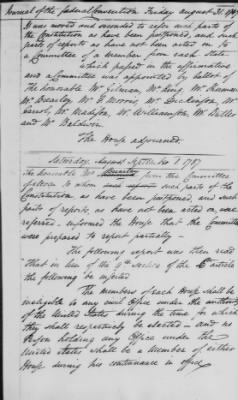 Journal of the federal Convention Friday August 31. 1787
It was moved and seconded to refer such parts of
the Constitution as have been postponed, and such
parts of reports as have not been acted on to
a Committee of a Member from each State
which passed in the affirmative
and a Committee was appointed by ballot of
The honorable Mr Gilman, Mr King, Mr Sherman
Mr Brearley, Mr G Morris, Mr Dickinson, Mr
Carroll, Mr Madison, Mr Williamson, Mr Butler
and Mr Baldwin.
The House adjourned.
Saturday, September 1. 1787
The honorable Mr Brearley from the Committee
of eleven to whom such parts of the
Constitution as have been postponed, and such
parts of reports, as have not been acted on, were
referred, informed the House that the Committee
were prepared to report partially —
The following report was then read
That in lieu of the 9th section of the 6 article
the following be inserted
The members of each House shall be
ineligible to any civil Office under the authority
of the United States during the time for which
they shall respectively be elected — and no
Person holding any Office under the
United States shall be a Member of either
House during his continuance in office.